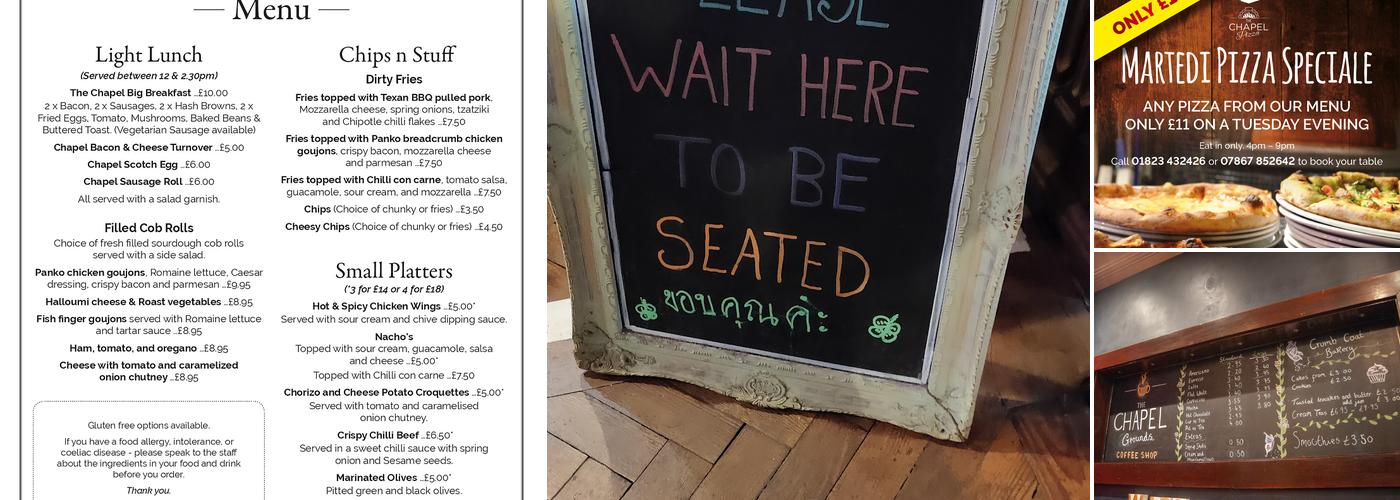 Menu
Light Lunch
(Served between 12 & 2.30pm)
The Chapel Big Breakfast ...£10.00
2 x Bacon, 2 x Sausages, 2 x Hash Browns, 2 x
Fried Eggs, Tomato, Mushrooms, Baked Beans &
Buttered Toast. (Vegetarian Sausage available)
Chapel Bacon & Cheese Turnover ...£5.00
Chapel Scotch Egg ...£6.00
Chapel Sausage Roll ...£6.00
All served with a salad garnish.
Filled Cob Rolls
Choice of fresh filled sourdough cob rolls
served with a side salad.
Panko chicken goujons, Romaine lettuce, Caesar
dressing, crispy bacon and parmesan ...£9.95
Halloumi cheese & Roast vegetables ...£8.95
Fish finger goujons served with Romaine lettuce
and tartar sauce ...£8.95
Ham, tomato, and oregano ...£8.95
Cheese with tomato and caramelized
onion chutney ...£8.95
Gluten free options available.
If you have a food allergy, intolerance, or
coeliac disease - please speak to the staff
about the ingredients in your food and drink
before you order.
Thank you.
Chips n Stuff
Dirty Fries
Fries topped with Texan BBQ pulled pork,
Mozzarella cheese, spring onions, tzatziki
and Chipotle chilli flakes ...£7.50
Fries topped with Panko breadcrumb chicken
goujons, crispy bacon, mozzarella cheese
and parmesan ...£7.50
Fries topped with Chilli con carne, tomato salsa,
guacamole, sour cream, and mozzarella ...£7.50
Chips (Choice of chunky or fries) ...£3.50
Cheesy Chips (Choice of chunky or fries) ...£4.50
Small Platters
(*3 for £14 or 4 for £18)
Hot & Spicy Chicken Wings ...£5.00*
Served with sour cream and chive dipping sauce.
Nacho's
Topped with sour cream, guacamole, salsa
and cheese ...£5.00*
Topped with Chilli con carne ...£7.50
Chorizo and Cheese Potato Croquettes ...£5.00*
Served with tomato and caramelised
onion chutney.
Crispy Chilli Beef ...£6.50*
Served in a sweet chilli sauce with spring
onion and Sesame seeds.
Marinated Olives ...£5.00*
Pitted green and black olives.
PLEASE
WAIT HERE
TO BE
SEATED
ขอบคุณค่ะ
ONLY
CHAPEL
Pizza
MARTEDI PIZZA SPECIALE
ANY PIZZA FROM OUR MENU
ONLY £11 ON A TUESDAY EVENING
Eat in only. 4pm – 9pm
Call 01823 432426 or 07867 852642 to book your table
THE
CHAPEL
Grounds
COFFEE SHOP
Americano
Espresso
Latte
Flat White
Cappuccino
Mocha
Hot Chocolate
Extras
0.50
0.50
Crumb Coat
Bakery
Cakes from £3.00
Cookies £2.50
Toasted teacakes and butter
Cream Teas £6.95
Smoothies £3.50